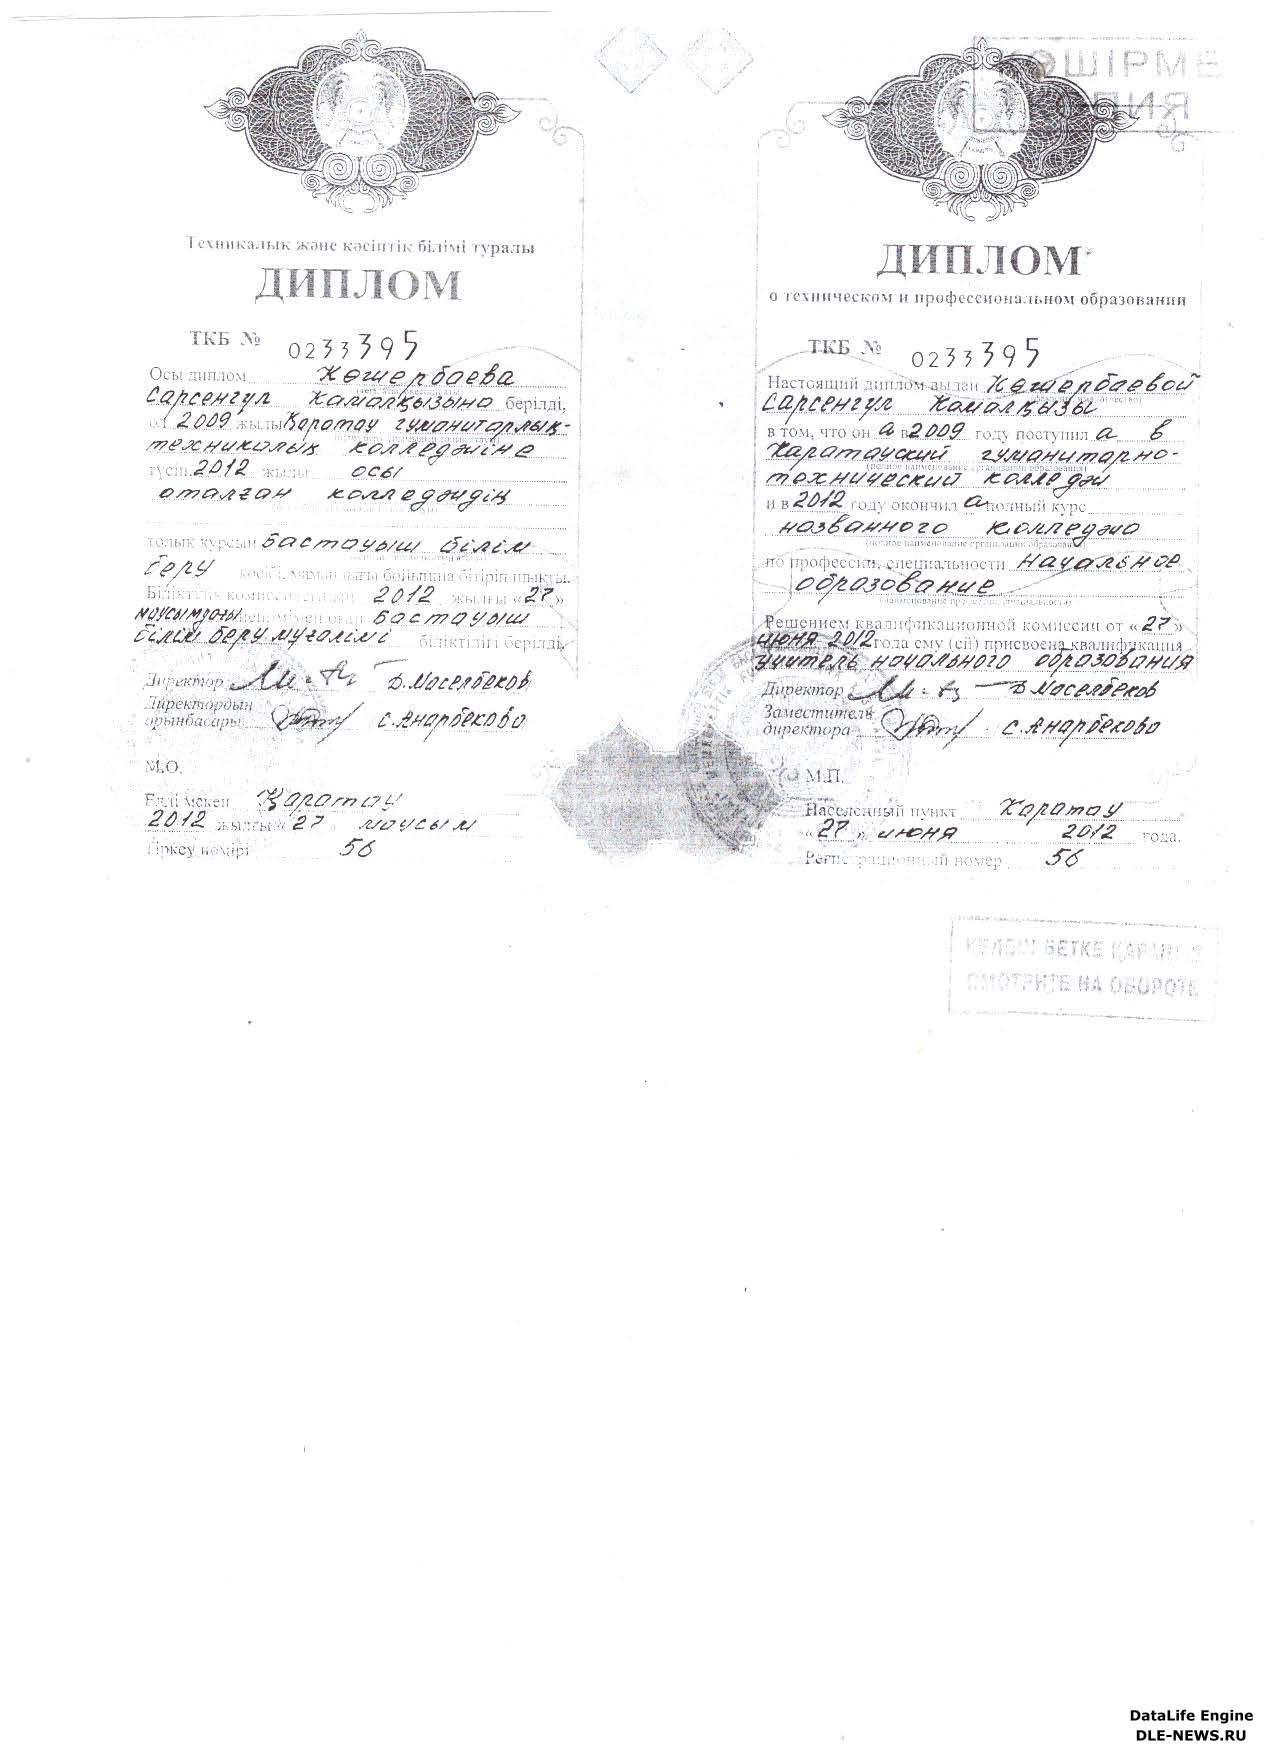 КӨШІРМЕ
КОПИЯ
Техникалық және кәсіптік білімі туралы
ДИПЛОМ
ТКБ № 0233395
Осы диплом Көшербаева
Сарсенгүл Камалқызына берілді,
ол 2009 жылы Қаратау гуманитарлық-
техникалық колледжіне
түсіп 2012 жылы осы
аталған колледждің
толық курсын бастауыш білім
беру кәсібі, мамандығы бойынша бітіріп шықты.
Біліктілік комиссиясының 2012 жылғы «27»
маусымдағы шешімімен оған бастауыш
білім беру мұғалімі біліктілігі берілді.
Директор Б.Маселбеков
Директордың
орынбасары С.Анарбекова
М.О.
Елді мекен Қаратау
2012 жылғы «27» маусым
Тіркеу нөмірі 56
ДИПЛОМ
о техническом и профессиональном образовании
ТКБ № 0233395
Настоящий диплом выдан Көшербаевой
Сарсенгүл Камалқызы
в том, что он а в 2009 году поступил а в
Каратауский гуманитарно-
(полное наименование организации образования)
технический колледж
и в 2012 году окончил а полный курс
названного колледжа
(полное наименование организации образования)
по профессии, специальности начальное
образование
(наименование профессии, специальности)
Решением квалификационной комиссии от «27»
июня 2012 года ему (ей) присвоена квалификация
учитель начального образования
Директор Б.Маселбеков
Заместитель
директора С.Анарбекова
М.П.
Населенный пункт Каратау
«27» июня 2012 года.
Регистрационный номер 56
КЕЛЕСІ БЕТКЕ ҚАРАҢЫЗ
СМОТРИТЕ НА ОБОРОТЕ
DataLife Engine
DLE-NEWS.RU